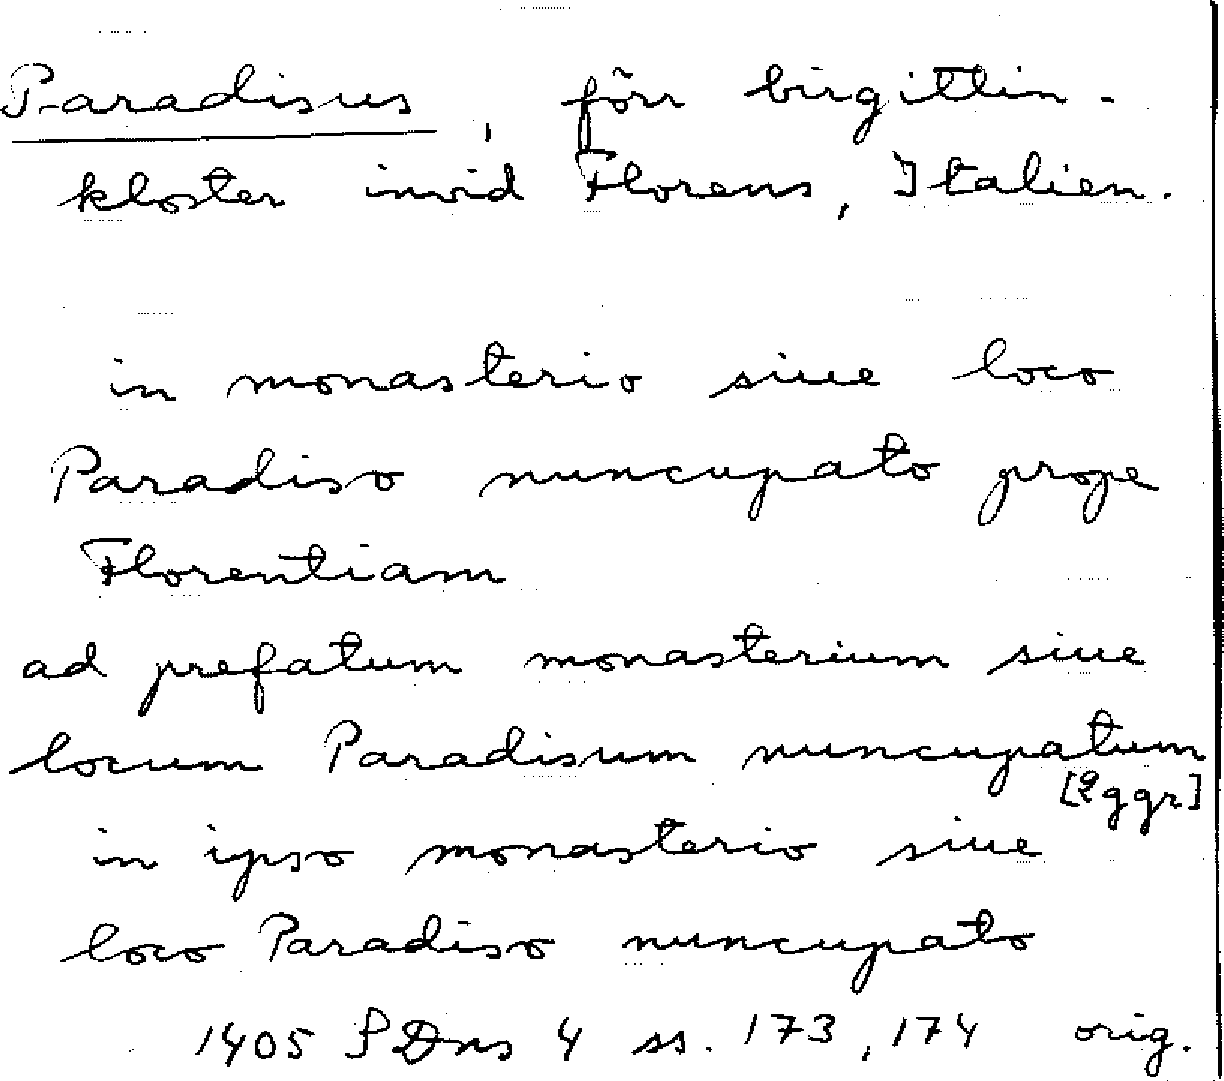 Paradisus, förr birgittin-
kloster invid Florens, Italien.
in monasterio siue loco
Paradiso nuncupato prope
Florentiam
ad prefatum monasterium siue
locum Paradisum nuncupatum
[2ggr]
in ipso monasterio siue
loco Paradiso nuncupato
1405 SDns 4 ss. 173, 174 orig.